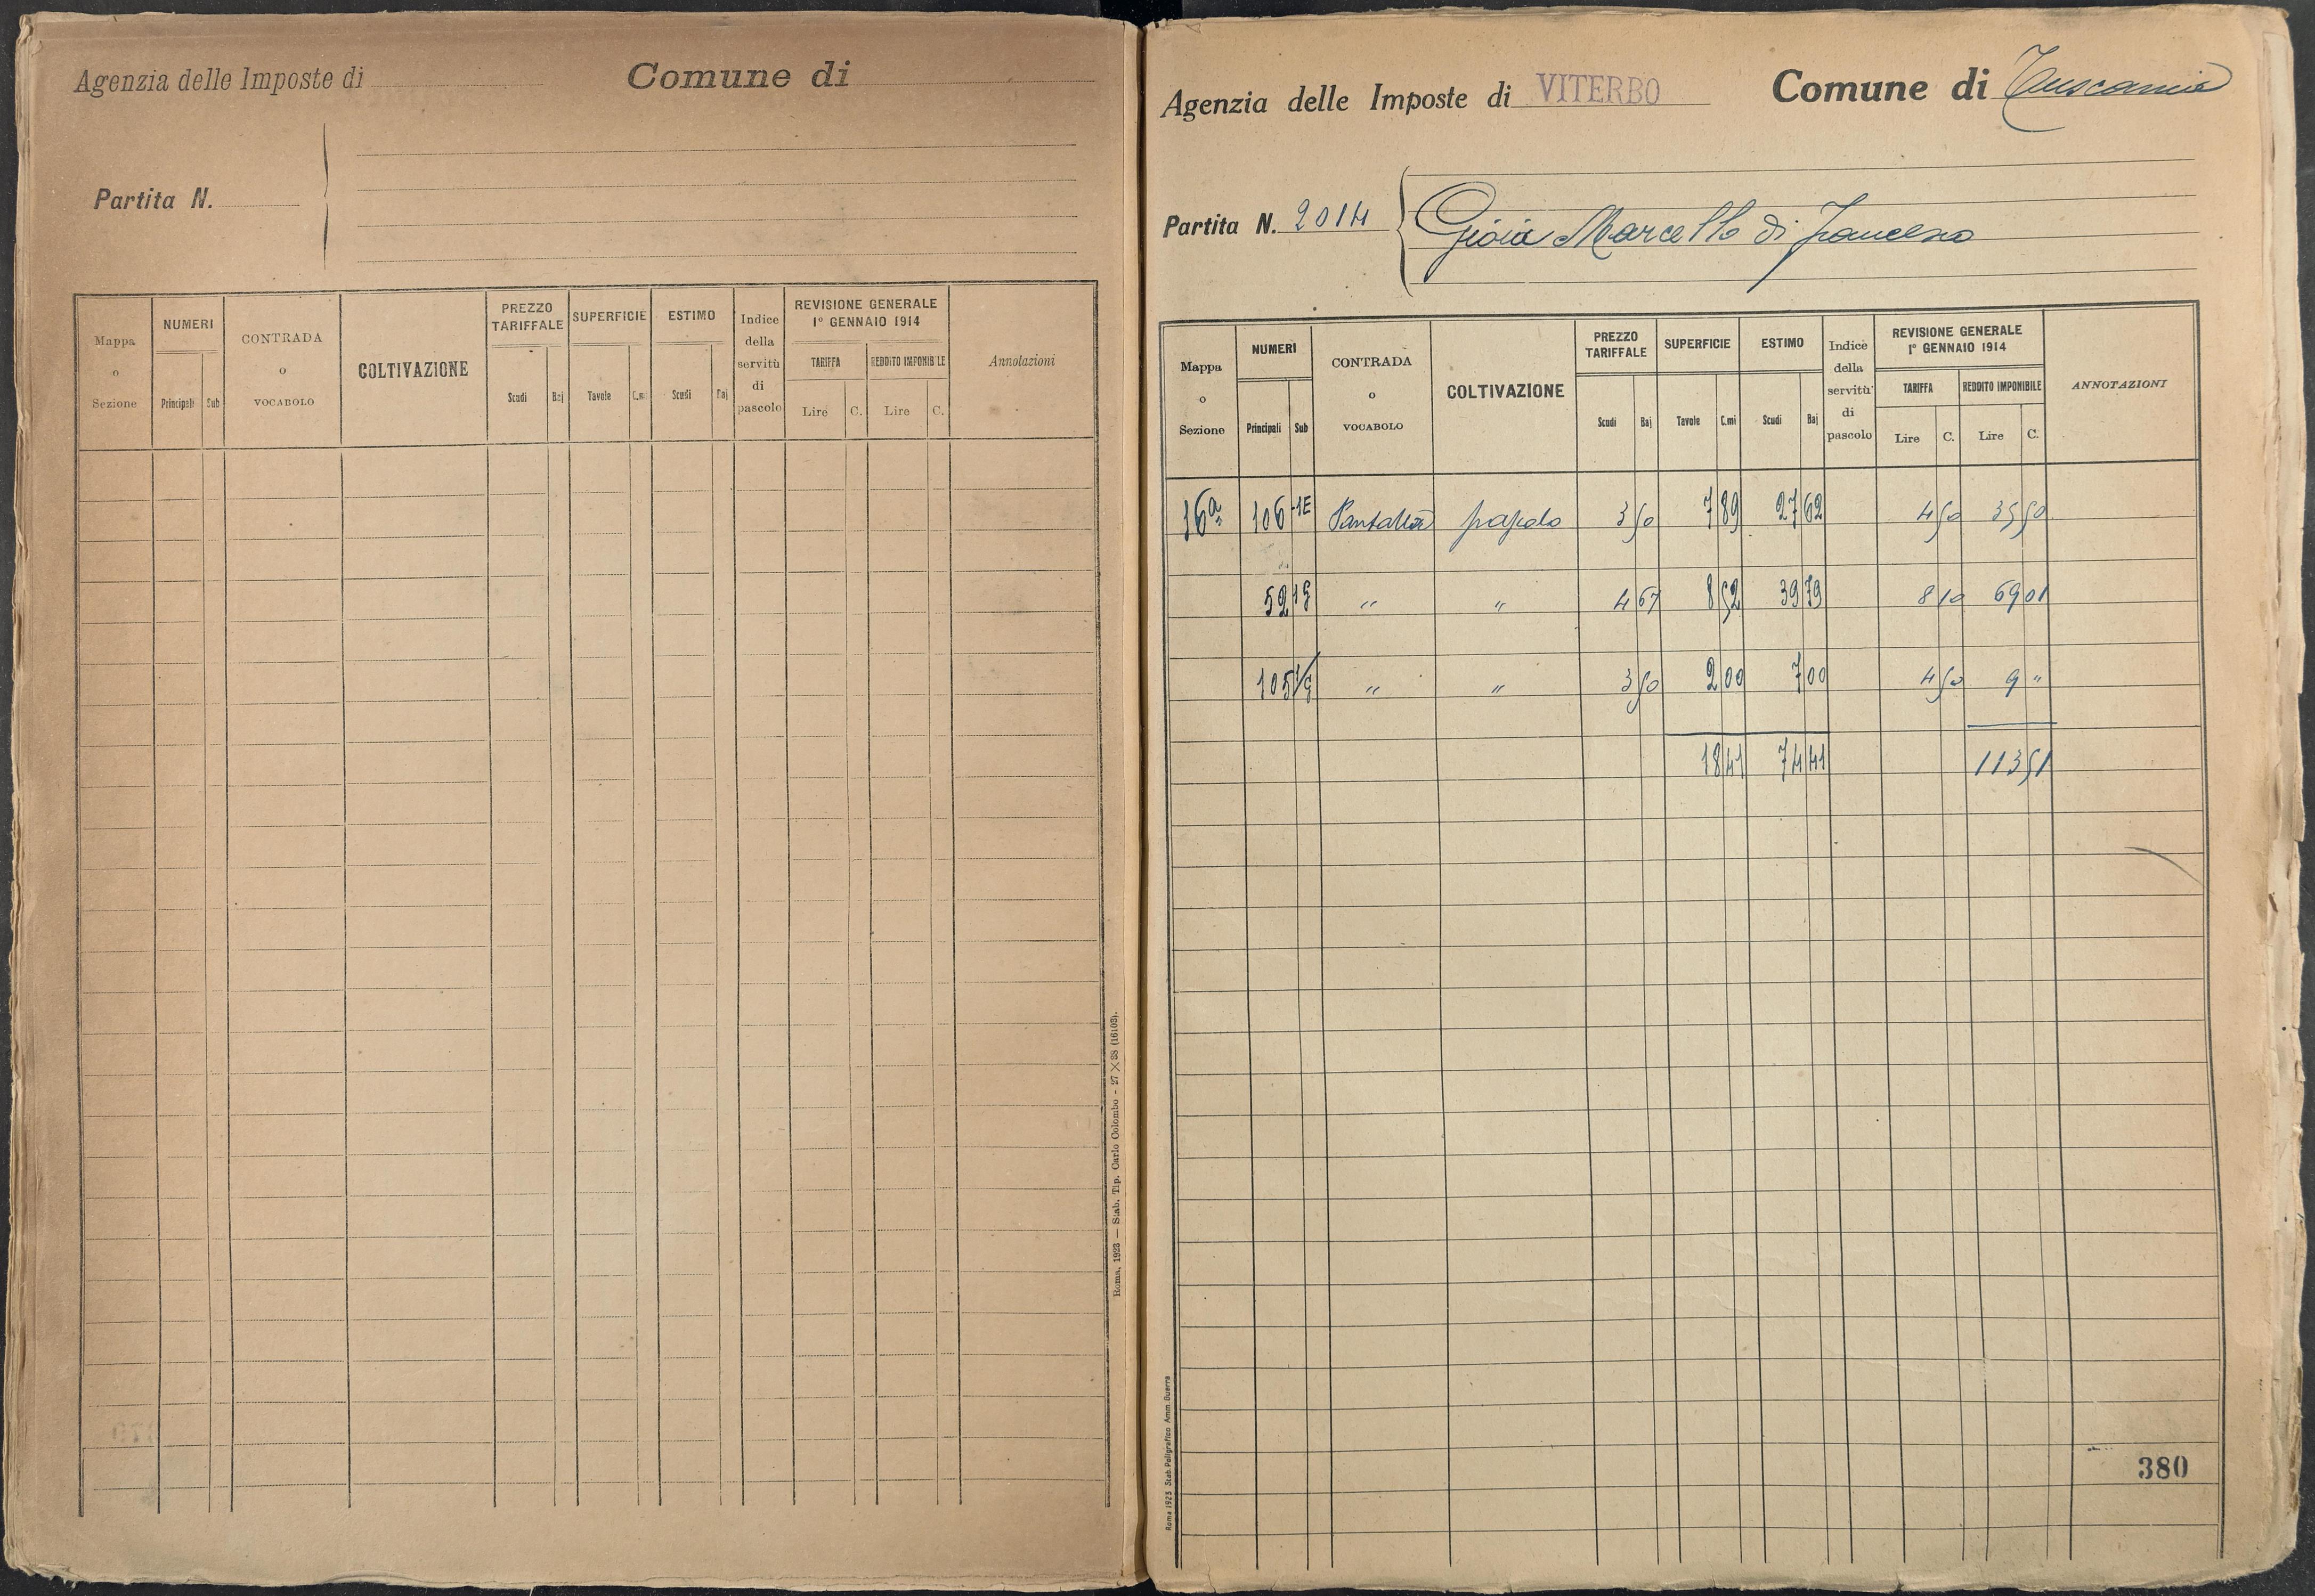 Agenzia delle Imposte di
Comune di
Partita N.
Mappa o Sezione
NUMERI
Principali Sub
CONTRADA o VOCABOLO
COLTIVAZIONE
PREZZO TARIFFALE
Scudi Baj
SUPERFICIE
Tavole C.mi
ESTIMO
Scudi Baj
Indice della servitù di pascolo
REVISIONE GENERALE
1° GENNAIO 1914
TARIFFA
Lire C.
REDDITO IMPONIBILE
Lire C.
Annotazioni
Roma, 1923 — Stab. Tip. Carlo Colombo - 27 X 38 (16103).
Agenzia delle Imposte di VITERBO
Comune di Tuscania
Partita N. 2014
Gioia Marcello di Francesco
Mappa o Sezione
NUMERI
Principali Sub
CONTRADA o VOCABOLO
COLTIVAZIONE
PREZZO TARIFFALE
Scudi Baj
SUPERFICIE
Tavole C.mi
ESTIMO
Scudi Baj
Indice della servitù di pascolo
REVISIONE GENERALE
1° GENNAIO 1914
TARIFFA
Lire C.
REDDITO IMPONIBILE
Lire C.
ANNOTAZIONI
16ª 106 3 50 7 89 27 62 4 50 35 50
52 " " 4 67 8 52 39 79 8 10 69 01
105 " " 3 50 2 00 7 00 4 50 9 "
18 41 74 41 113 51
Roma 1923 Stab. Poligrafico Amm. Guerra
380